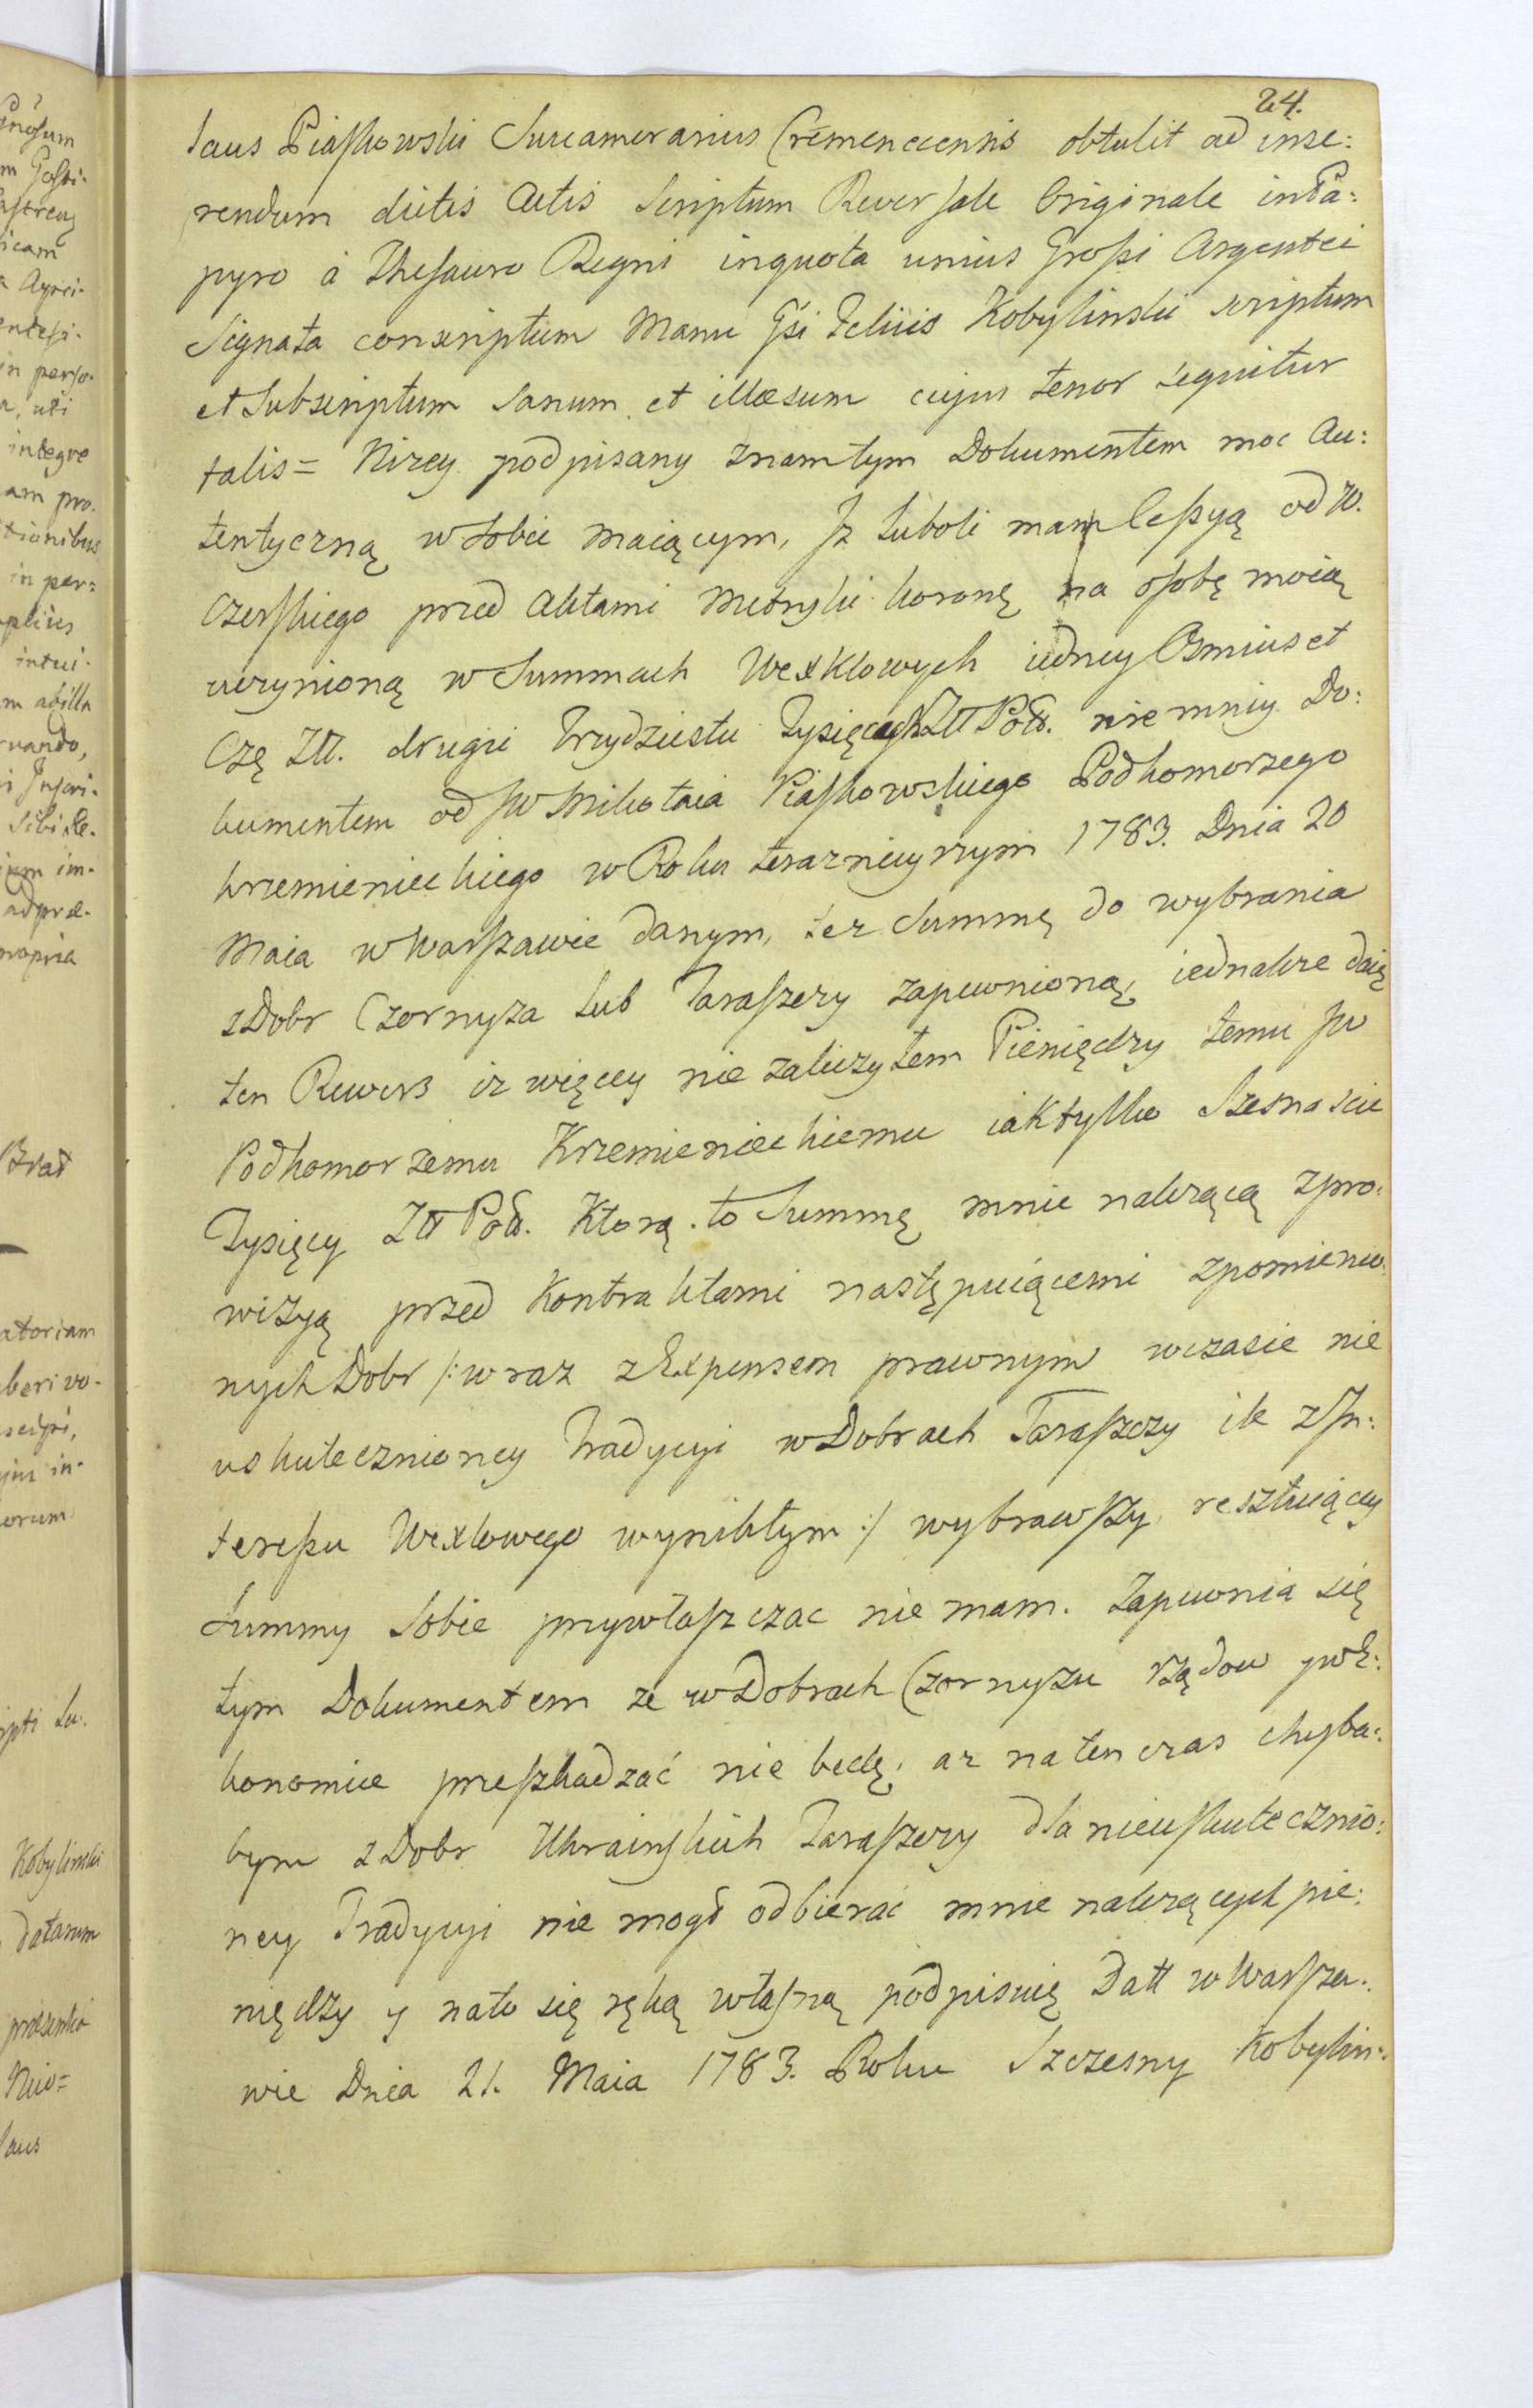 24.
laus Piaskowski Succamerarius Cremenecensis obtulit ad inse:
rendum dictis Actis Scriptum Reversale Originale in Pa:
pyro à Thesauro Regni in quota unius Grossi Argentei
Signata conscriptum Manu Gsi Felicis Kobylinski scriptum
et Subscriptum Sanum et illæsum cujus tenor sequitur
talis = Nizey podpisany znam tym Dokumentem moc Au:
tentyczną w Sobie maiącym, Jz luboli mam Cessyą od W.
Czerskiego przed Aktami Metryki Koronę na osobę moią
uczynioną w Summach Wexklowych iedney Osmiuset
Czę Złł. drugi Trzydziestu Tysięcy Złł Pols. niemniey Do:
kumentem od JW Mikołaia Piaskowskiego Podkomorzego
krzemienieckiego w Roku terazniejszym 1783. Dnia 20
Maia w Warszawie danym, tez Summę do wybrania
z Dobr Czornyza lub Taraszczy zapewnioną, iednakze daię
ten Rewers iz więcey nie zaliczyłem Pieniędzy temu JW
Podkomorzemu Krzemienieckiemu iak tylko Szesnascie
Tysięcy Złł Pols. Ktorą to Summę mnie nalezącą z pro:
wizyą przed Kontraktami następuiącemi z pomienio:
nych Dobr /: wraz z Expensem prawnym wczasie nie
uskutecznioney Tradycyi w Dobrach Taraszczy ile z Jn:
teressu Wexlowego wynikłym :/ wybrawszy, resztuiącey
Summy Sobie przywłaszczac nie mam. Zapewnia się
tym Dokumentem ze w Dobrach Czornyzu rządow y w E:
konomice przeszkadzać nie będę, az na ten czas chyba:
bym z Dobr Ukrainskich Taraszczy dla nieuskutecznio:
ney Tradycyi nie mogł odbierać mnie nalezących pie:
niędzy y na to się ręką własną podpisuię Datt w Warsza:
wie Dnia 21. Maia 1783. Roku Szczesny Kobylin: